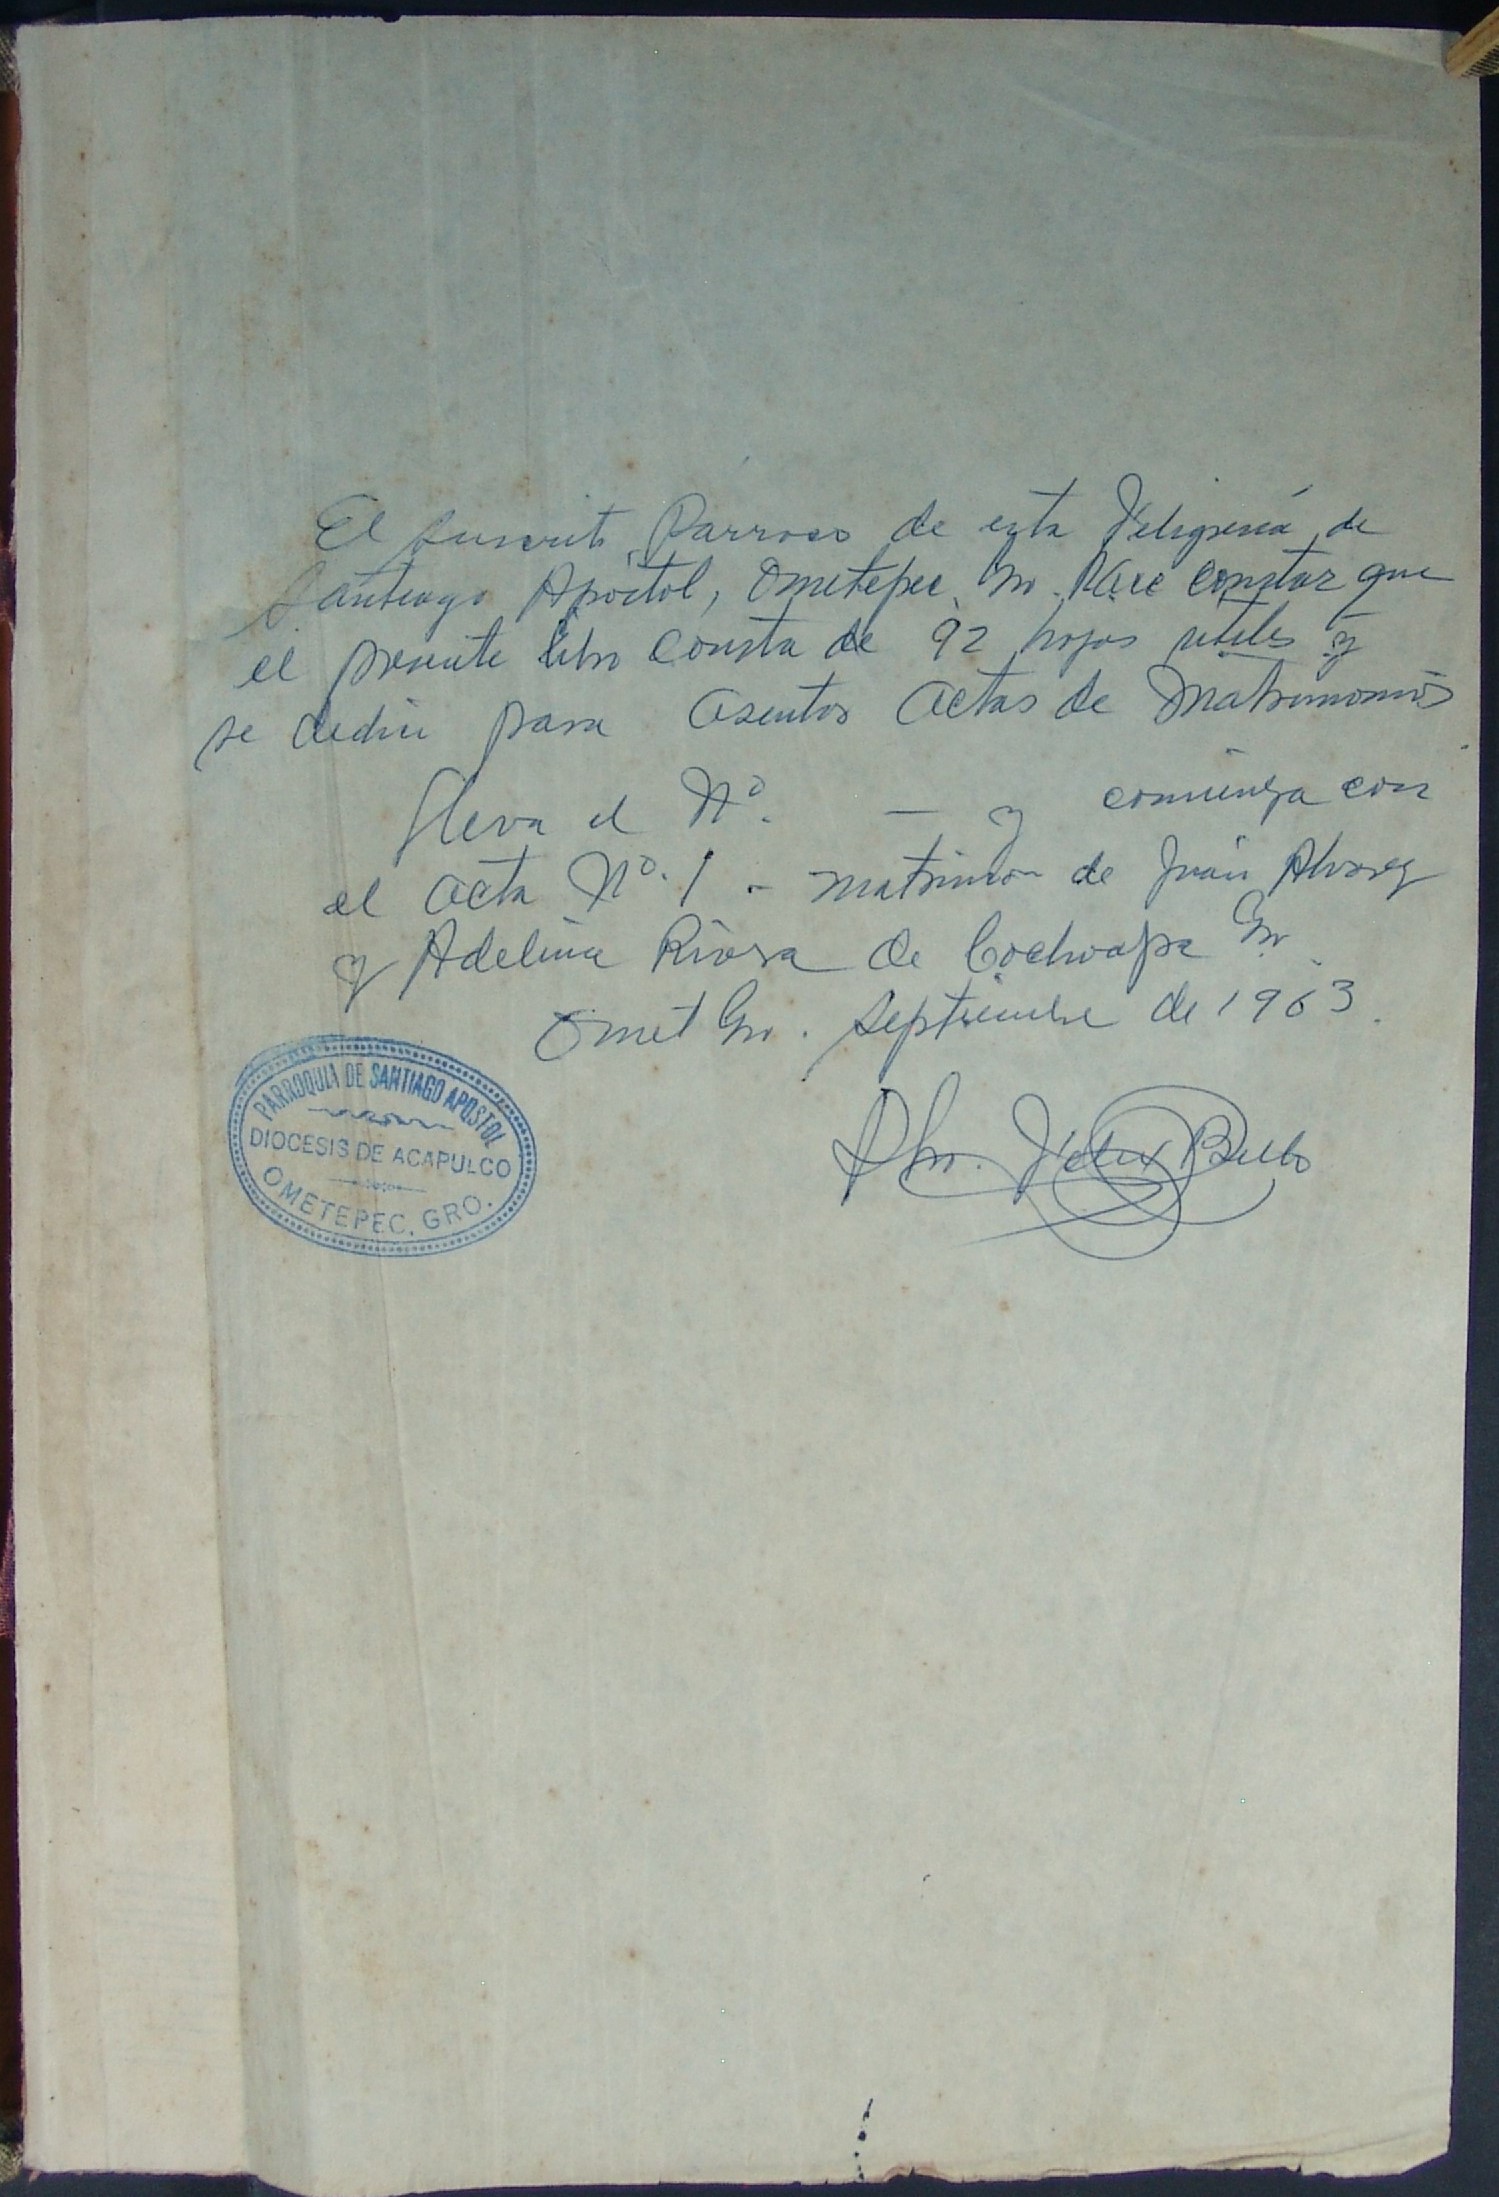 El suscrito Párroco de esta Feligresía de
Santiago Apóstol, Ometepec Gro. hace constar que
el presente libro consta de 92 hojas utiles y
se dedica para asentar actas de Matrimonios
lleva el Nº. — y comienza con
el acta Nº. 1 - matrimon de Juán Alvarez
y Adelina Rivera de Cochoapa Gro
Omet Gro. Septiembre de 1963.
Pbro. Felix Bello
PARROQUIA DE SANTIAGO APOSTOL
DIOCESIS DE ACAPULCO
OMETEPEC, GRO.